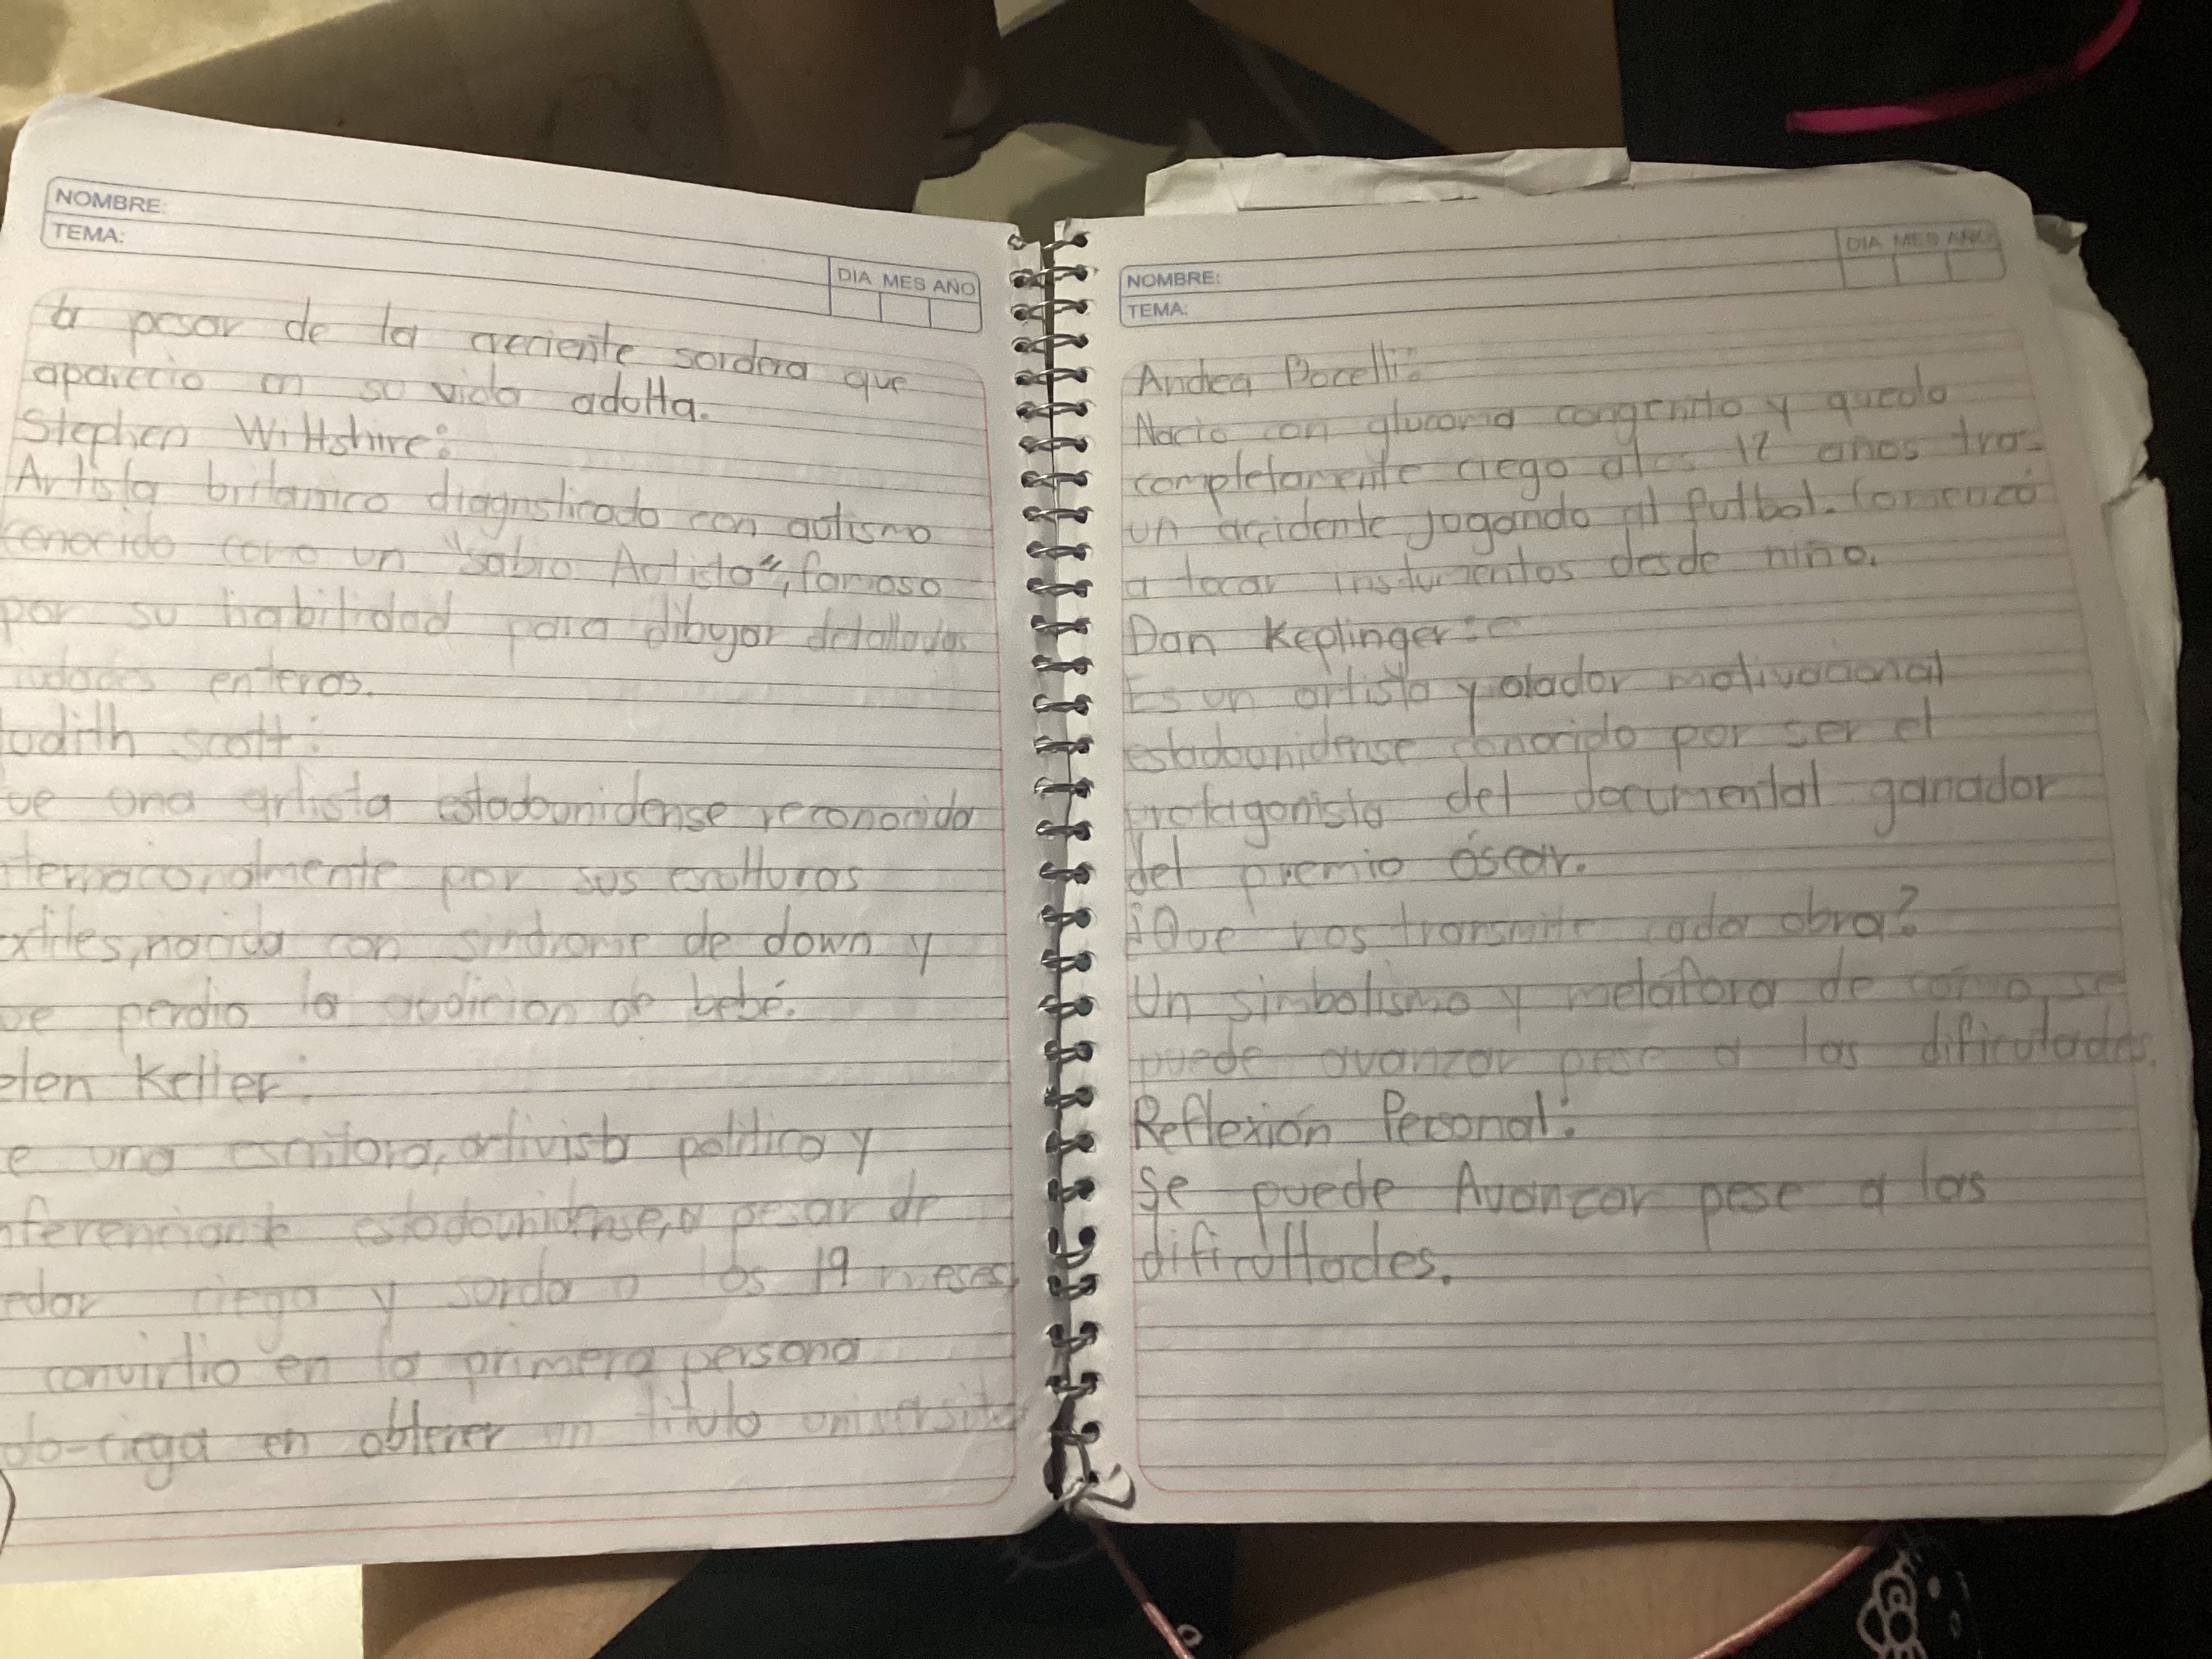 NOMBRE:
TEMA:
DIA MES AÑO
a pesar de la creciente sordera que
aparecio en su vida adulta.
Stephen Wiltshire:
Artista britanico diagnsticado con autismo
conocido como un "sabio Autista", famoso
por su habilidad para dibujar detallados
iudades enteros.
Judith scott:
ue una artista estadounidense reconocida
ternaconalmente por sus esculturas
xtiles, nacida con sindrome de down y
ue perdio la audicion de bebé.
elen Keller:
e una escritora, activista politica y
nferenciante estadounidense, a pesar de
edar ciega y sorda a los 19 meses,
convirtio en la primera persona
do-ciega en obtener un titulo universita
NOMBRE:
TEMA:
DIA MES AÑO
Andrea Bocelli:
Nacio con glucoma congenito y quedo
completamente ciego alos 12 años tras
un accidente jugando al futbol. Comenzó
a tocar instumentos desde niño.
Dan Keplinger:
Es un artista y orador motivacional
estadounidense conocido por ser el
protagonista del documental ganador
del premio óscar.
¿Que nos transmite cada obra?
Un simbolismo y metáfora de cómo se
puede avanzar pese a las dificultades.
Reflexión Personal:
Se puede Avanzar pese a las
dificultades.